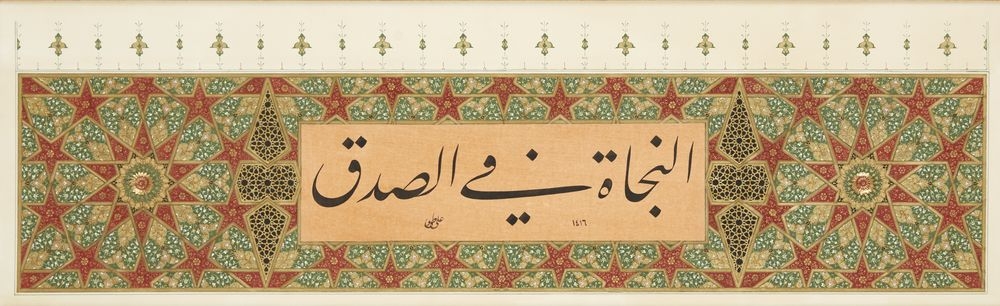 النجاة في الصدق
١٤١٦